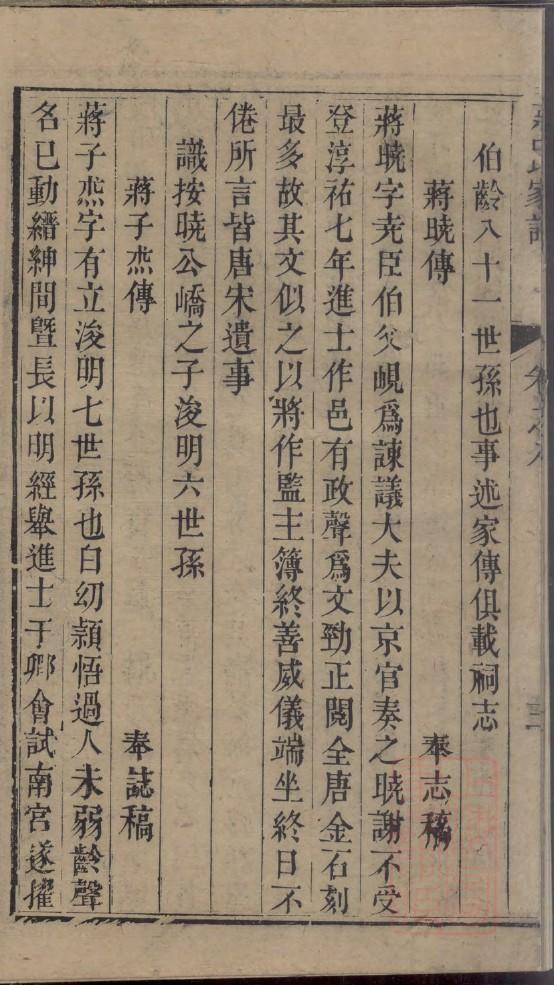 伯齡八十一世孫也事述家傳俱載祠志
蔣曉傳　奉志稿
蔣曉字尭臣伯父峴爲諫議大夫以京官奏之曉謝不受
登淳祐七年進士作邑有政聲爲文勁正閱全唐金石刻
最多故其文似之以將作監主簿終善威儀端坐終日不
倦所言皆唐宋遺事
識按曉公嶠之子浚明六世孫
蔣子烋傳　奉誌稿
蔣子烋字有立浚明七世孫也自幼頴悟過人未弱齡聲
名已動縉紳間曁長以明經舉進士于鄉會試南宮遂擢